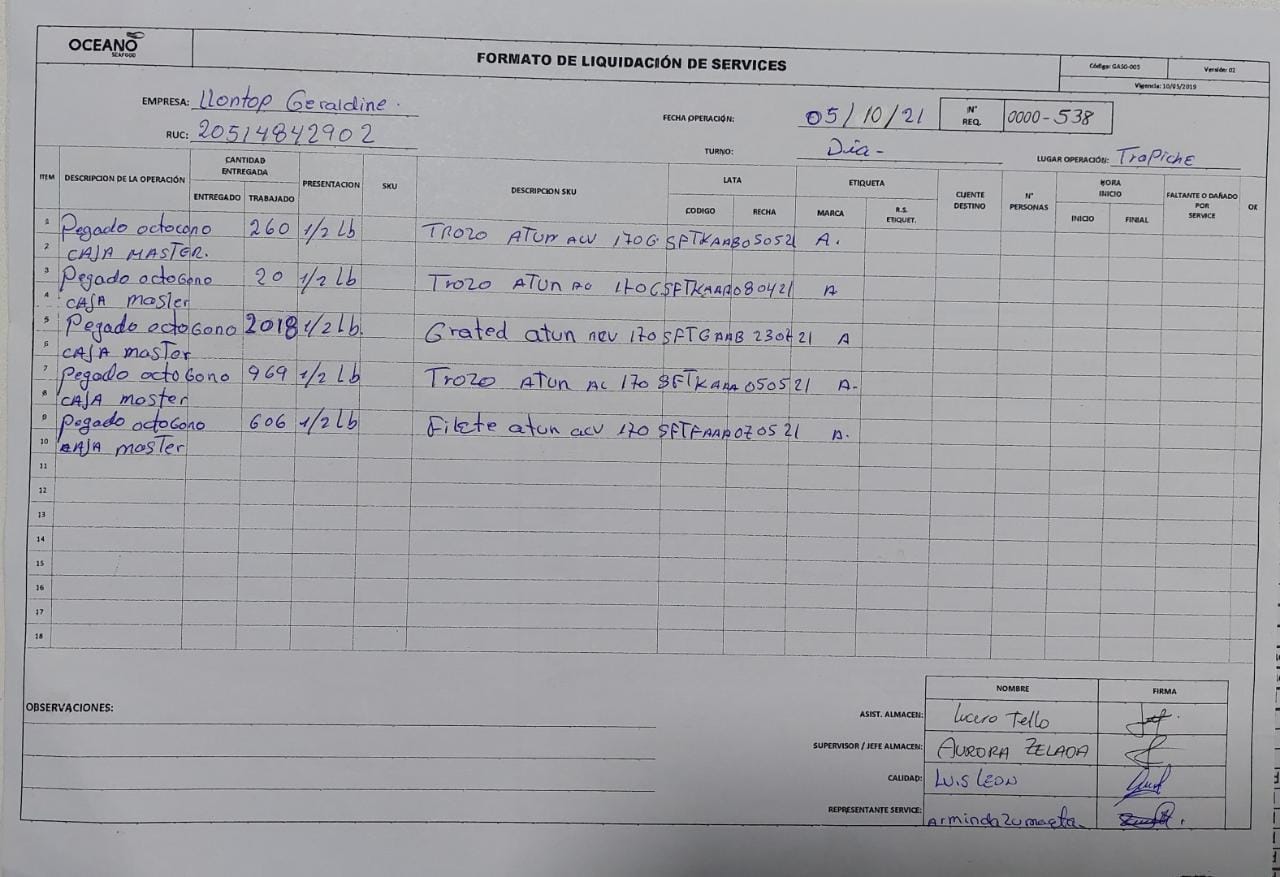 OCEANO
SEAFOOD
FORMATO DE LIQUIDACIÓN DE SERVICES
Código: GASG-005 Versión: 02
Vigencia: 10/05/2019
EMPRESA: Llontop Geraldine.
FECHA OPERACIÓN: 05/10/21 N° REQ. 0000-538
RUC: 20514842902
TURNO: Día- LUGAR OPERACIÓN: TraPiche
ITEM DESCRIPCION DE LA OPERACIÓN CANTIDAD ENTREGADA PRESENTACION SKU DESCRIPCION SKU LATA ETIQUETA CLIENTE DESTINO N° PERSONAS HORA INICIO FALTANTE O DAÑADO POR SERVICE OK
ENTREGADO TRABAJADO CODIGO FECHA MARCA R.S. ETIQUET. INICIO FINIAL
1 Pegado octocono 260 1/2 lb Trozo ATUN ACV 170G SFTKAAB050521 A.
2 CAJA MASTER.
3 Pegado octoGono 20 1/2 lb Trozo ATUN AC 170G SFTKAAA080421 A
4 CAJA master
5 Pegado octoGono 2018 1/2 lb. Grated atun ncv 170 SFTGAAB 230721 A
6 CAJA master
7 Pegado octoGono 969 1/2 Lb Trozo ATUN AC 170 SFTKAAA 050521 A-
8 CAJA moster
9 Pegado octogono 606 1/2 Lb Filete atun acv 170 SFTFAAA070521 A.
10 CAJA master
11
12
13
14
15
16
17
18
OBSERVACIONES:
NOMBRE FIRMA
ASIST. ALMACEN: Lucero Tello
SUPERVISOR / JEFE ALMACEN: AURORA ZELADA
CALIDAD: LUIS LEON
REPRESENTANTE SERVICE: Arminda Zumaeta